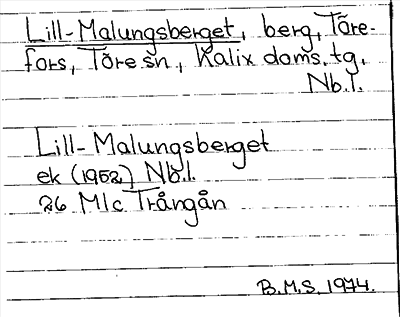 Lill-Malungsberget, berg, Töre-
fors, Töre sn, Kalix doms.tg,
Nb.l.
Lill-Malungsberget
ek (1952) Nb.l.
26 Mlc Trångån
B.M.S. 1974.